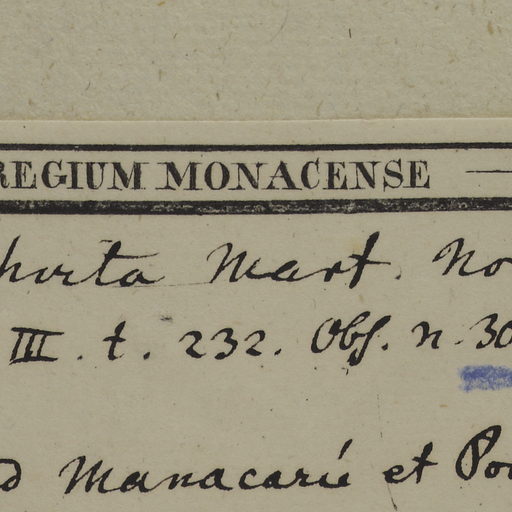 REGIUM MONACENSE
hirta Mart. No
III. t. 232. Obs. n. 30
d Manacarú et Po